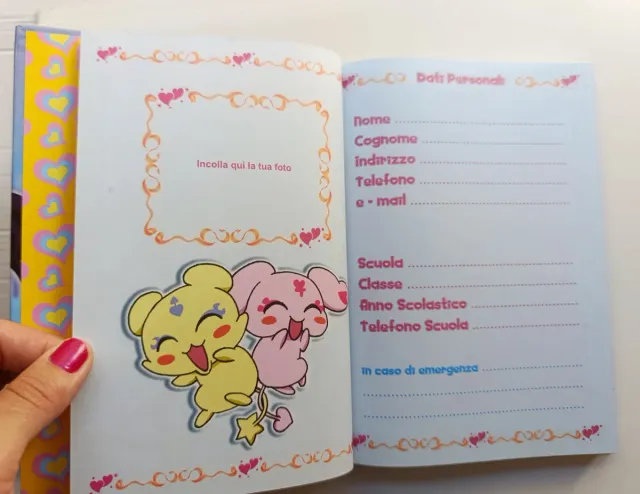 Incolla qui la tua foto
Dati Personali
Nome
Cognome
Indirizzo
Telefono
e - mail
Scuola
Classe
Anno Scolastico
Telefono Scuola
In caso di emergenza